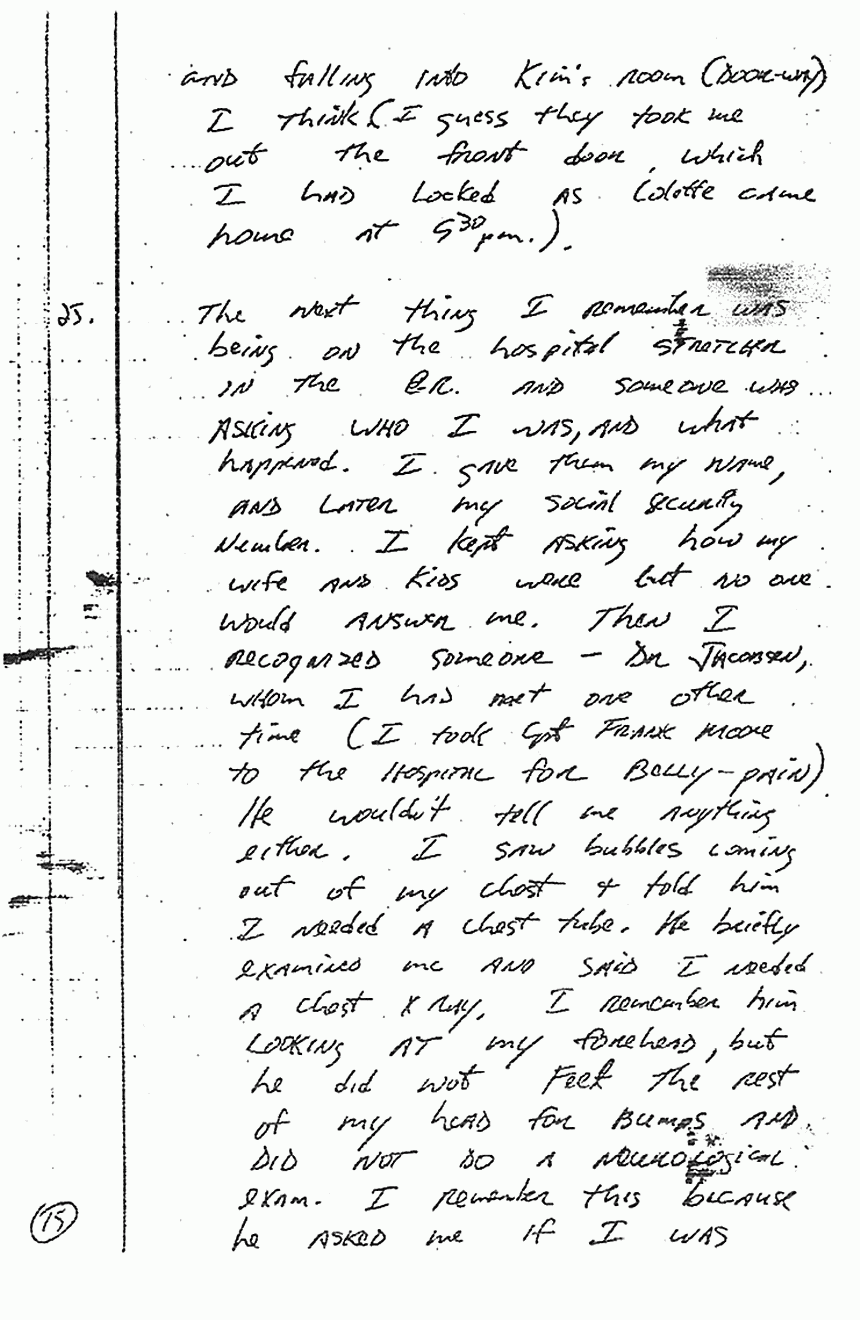 and falling into Kim's room (Door-way)
I think (I guess they took me
out the front door, which
I had locked as Colette came
home at 9 30 pm.).
25. The next thing I remember was
being on the hospital stretcher
in the E.R. and someone was
asking who I was, and what
happened. I gave them my name,
and later my social security
number. I kept asking how my
wife and kids were but no one
would answer me. Then I
recognized someone - Dr Jacobsen,
whom I had met one other
time (I took Cpt Frank Moore
to the Hospital for Belly-pain)
He wouldn't tell me anything
either. I saw bubbles coming
out of my chest & told him
I needed a chest tube. He briefly
examined me and said I needed
a chest X Ray. I remember him
looking at my forehead, but
he did not feel the rest
of my head for Bumps and
did not do a neurological
exam. I remember this because
he asked me if I was
15